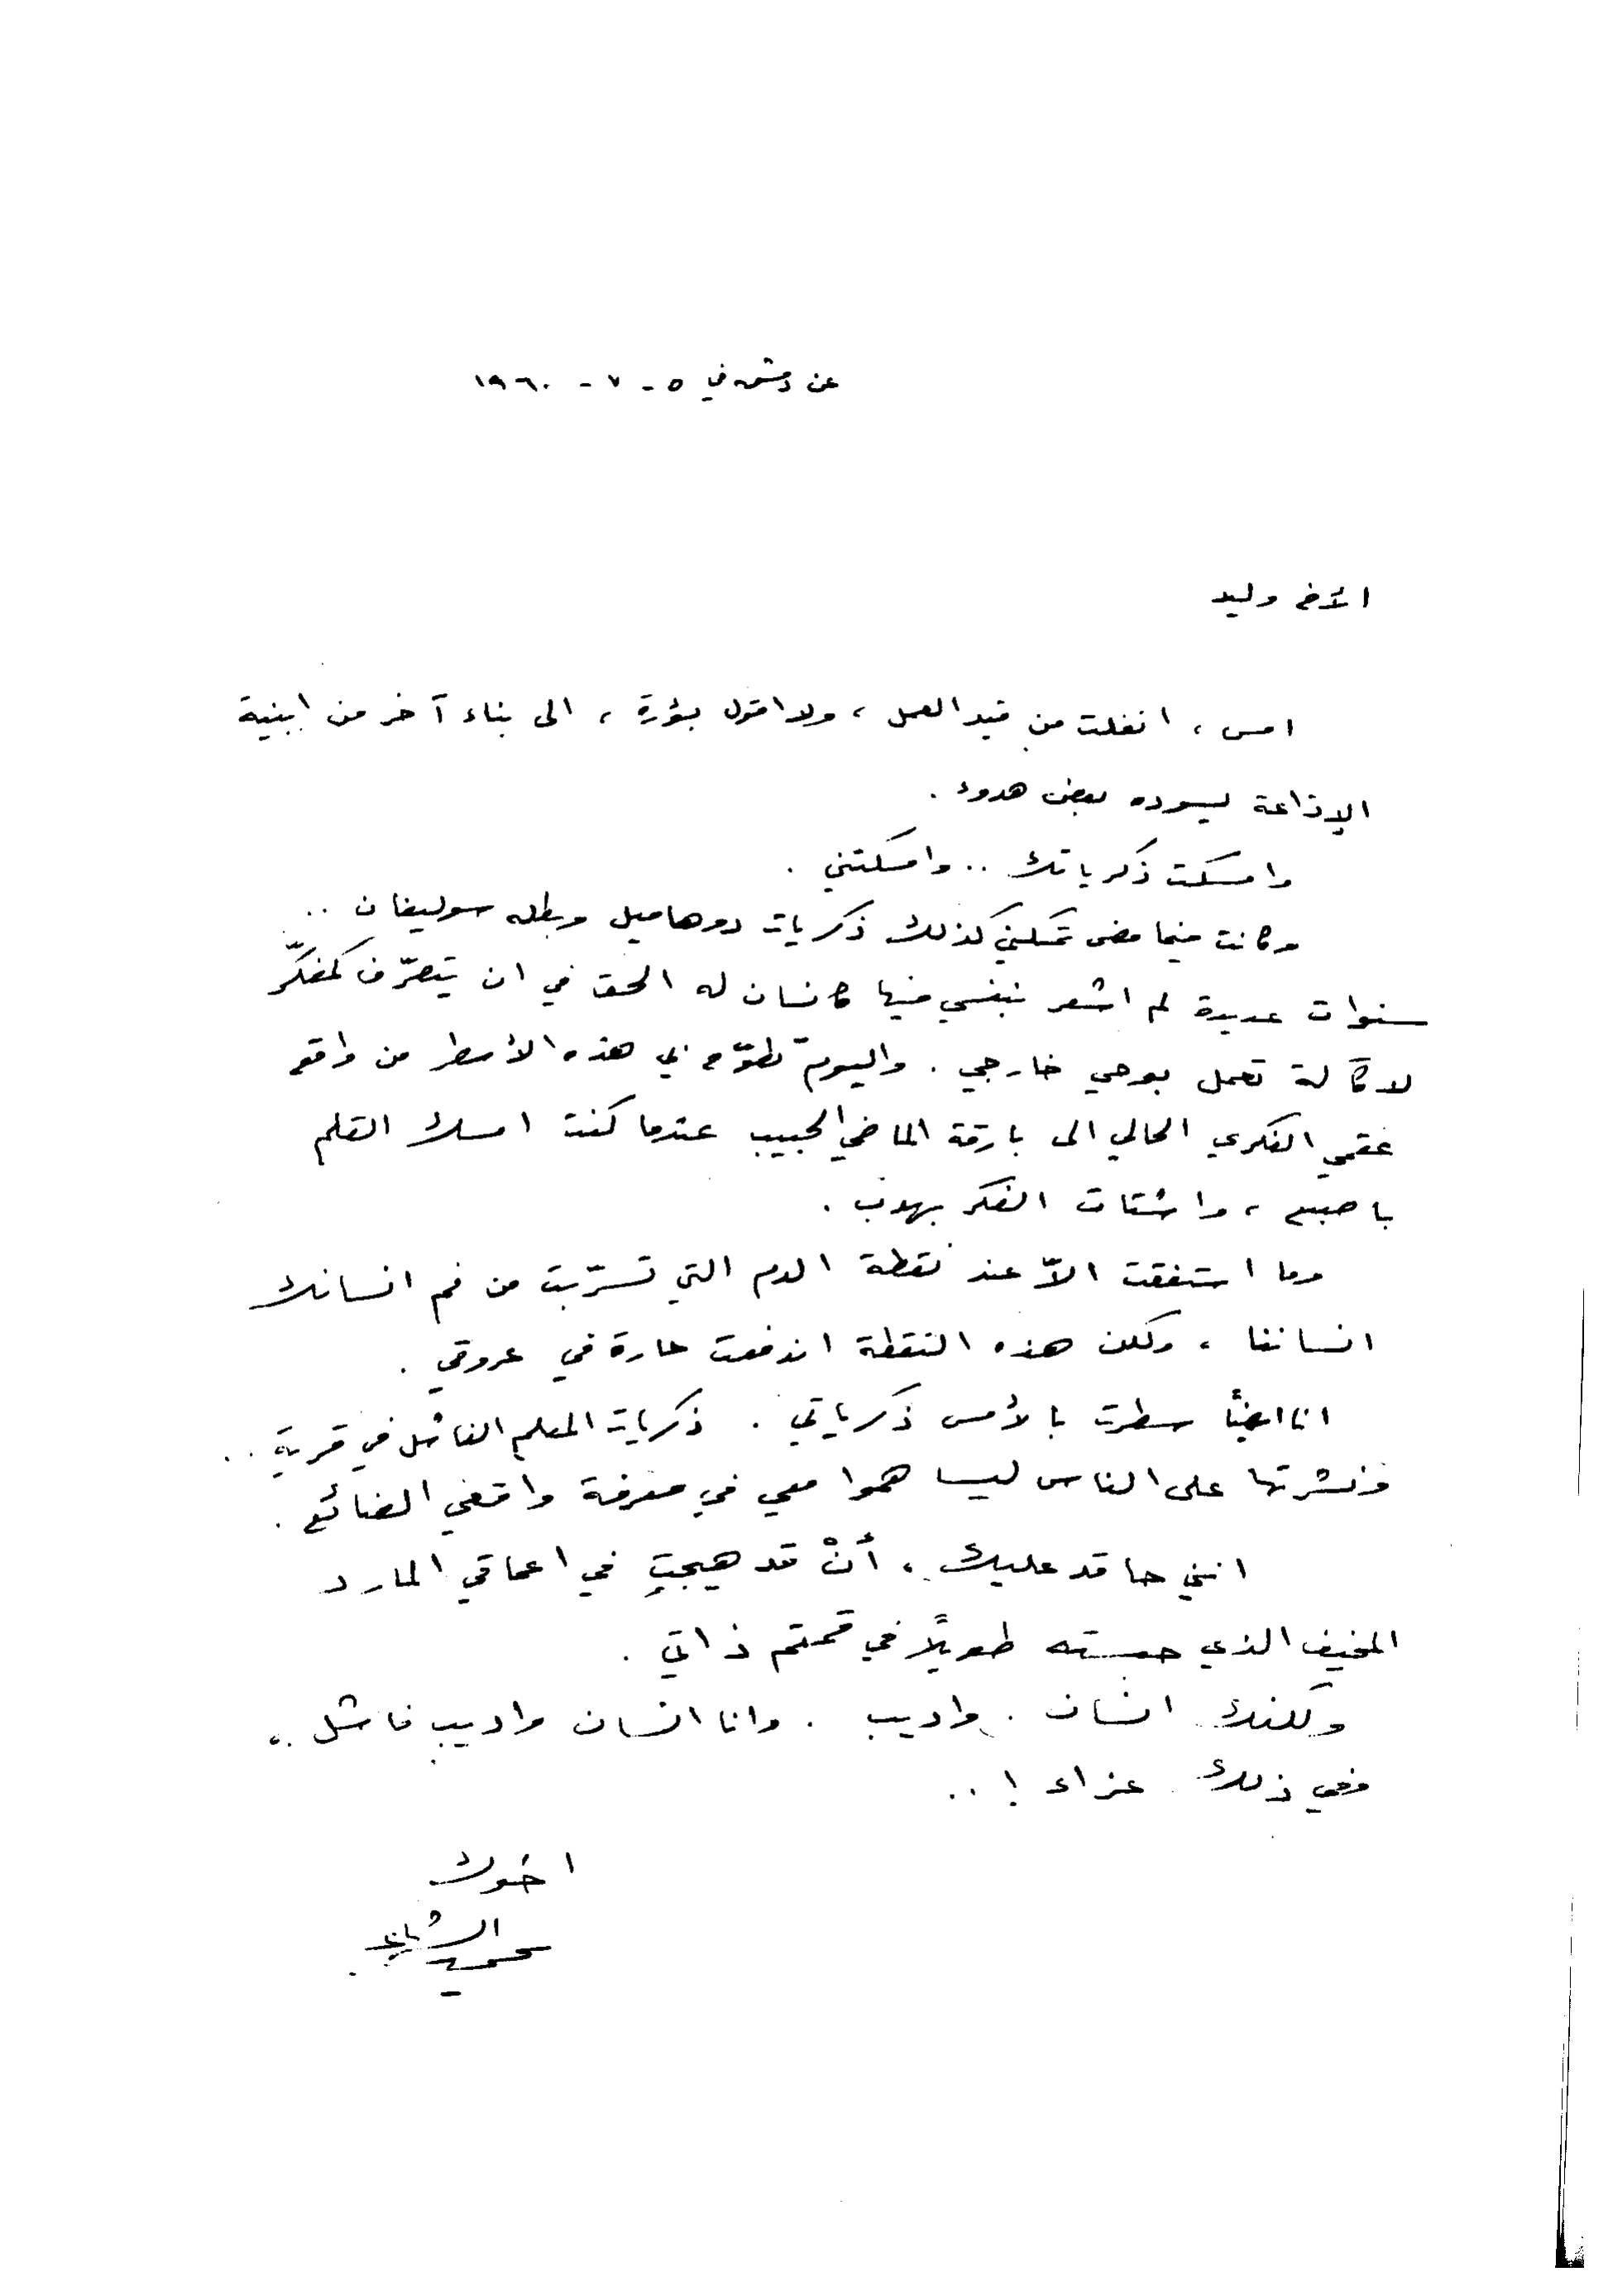 عن دمشق في ٥ - ٧ - ١٩٦٠
الأخ وليد
امس ، انفلت من قيد العمل ، ولا اقول بؤرة ، الى بناء آخر من ابنية
الإذاعة يسوده بعض هدوء .
وامسكت ذكرياتك .. وامسكتني .
وكانت فيما مضى تمسكني كذلك ذكريات دوهاميل وبطله سوليفان ..
سنوات عديدة لم اشعر بنفسي فيها كانسان له الحق في ان يتصرّف كمفكّر
لا كآلة تعمل بوحي خارجي . واليوم تطوّح بي هذه الأسطر من واقع
عقمي الفكري الحالي الى بارقة الماضي الحبيب عندما كنت امسك القلم
باصبع ، واشتات الفكر بهدب .
وما استفقت الاّ عند نقطة الدم التي تسرّبت من فم انسانك
انساننا ، ولكن هذه النقطة اندفعت حارة في عروقي .
انا ايضاً سطرت بالأمس ذكرياتي . ذكريات المعلم الفاشل في قرية ..
ونشرتها على الناس ليساهموا معي في معرفة واقعي الضائع .
انني حاقد عليك ، أنْ قد هيجتِ في اعماقي المارد
المخيف الذي حبسته طويلاً في قمقم ذاتي .
ولكنك انسان . واديب . وانا انسان واديب فاشل ..
ففي ذلك عزاء ! ..
اخوك